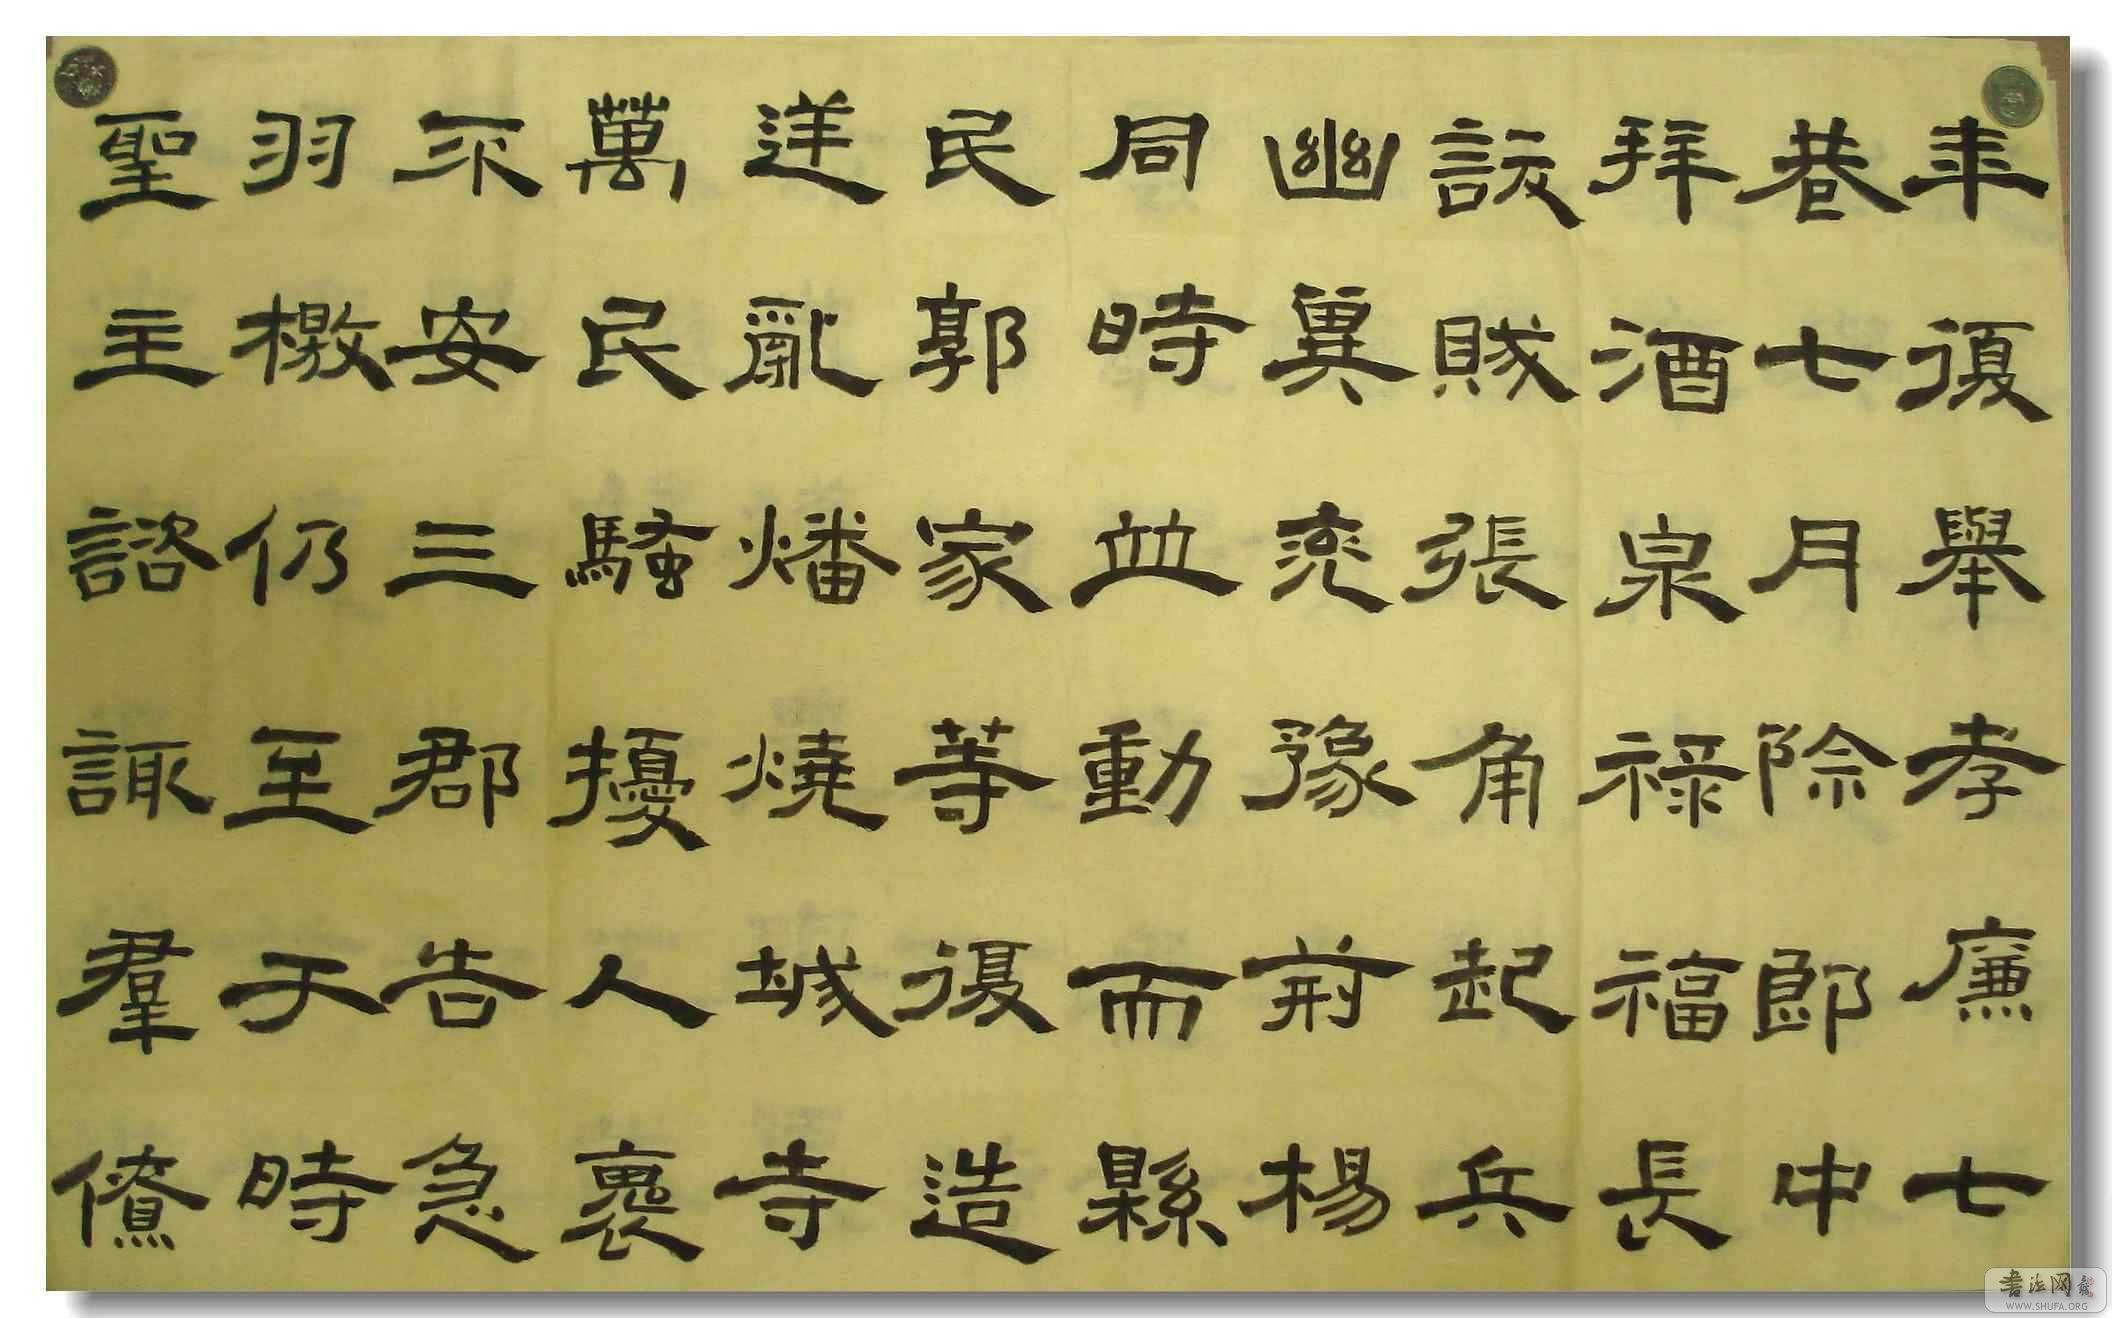 年復舉孝廉七
巷七月除郎中
拜酒泉祿福長
訞賊張角起兵
幽冀兗豫荊楊
同時並動而縣
民郭家等復造
逆亂燔燒城寺
萬民騷擾人褱
不安三郡告急
羽檄仍至于時
聖主諮諏羣僚
书法网
WWW.SHUFA.ORG